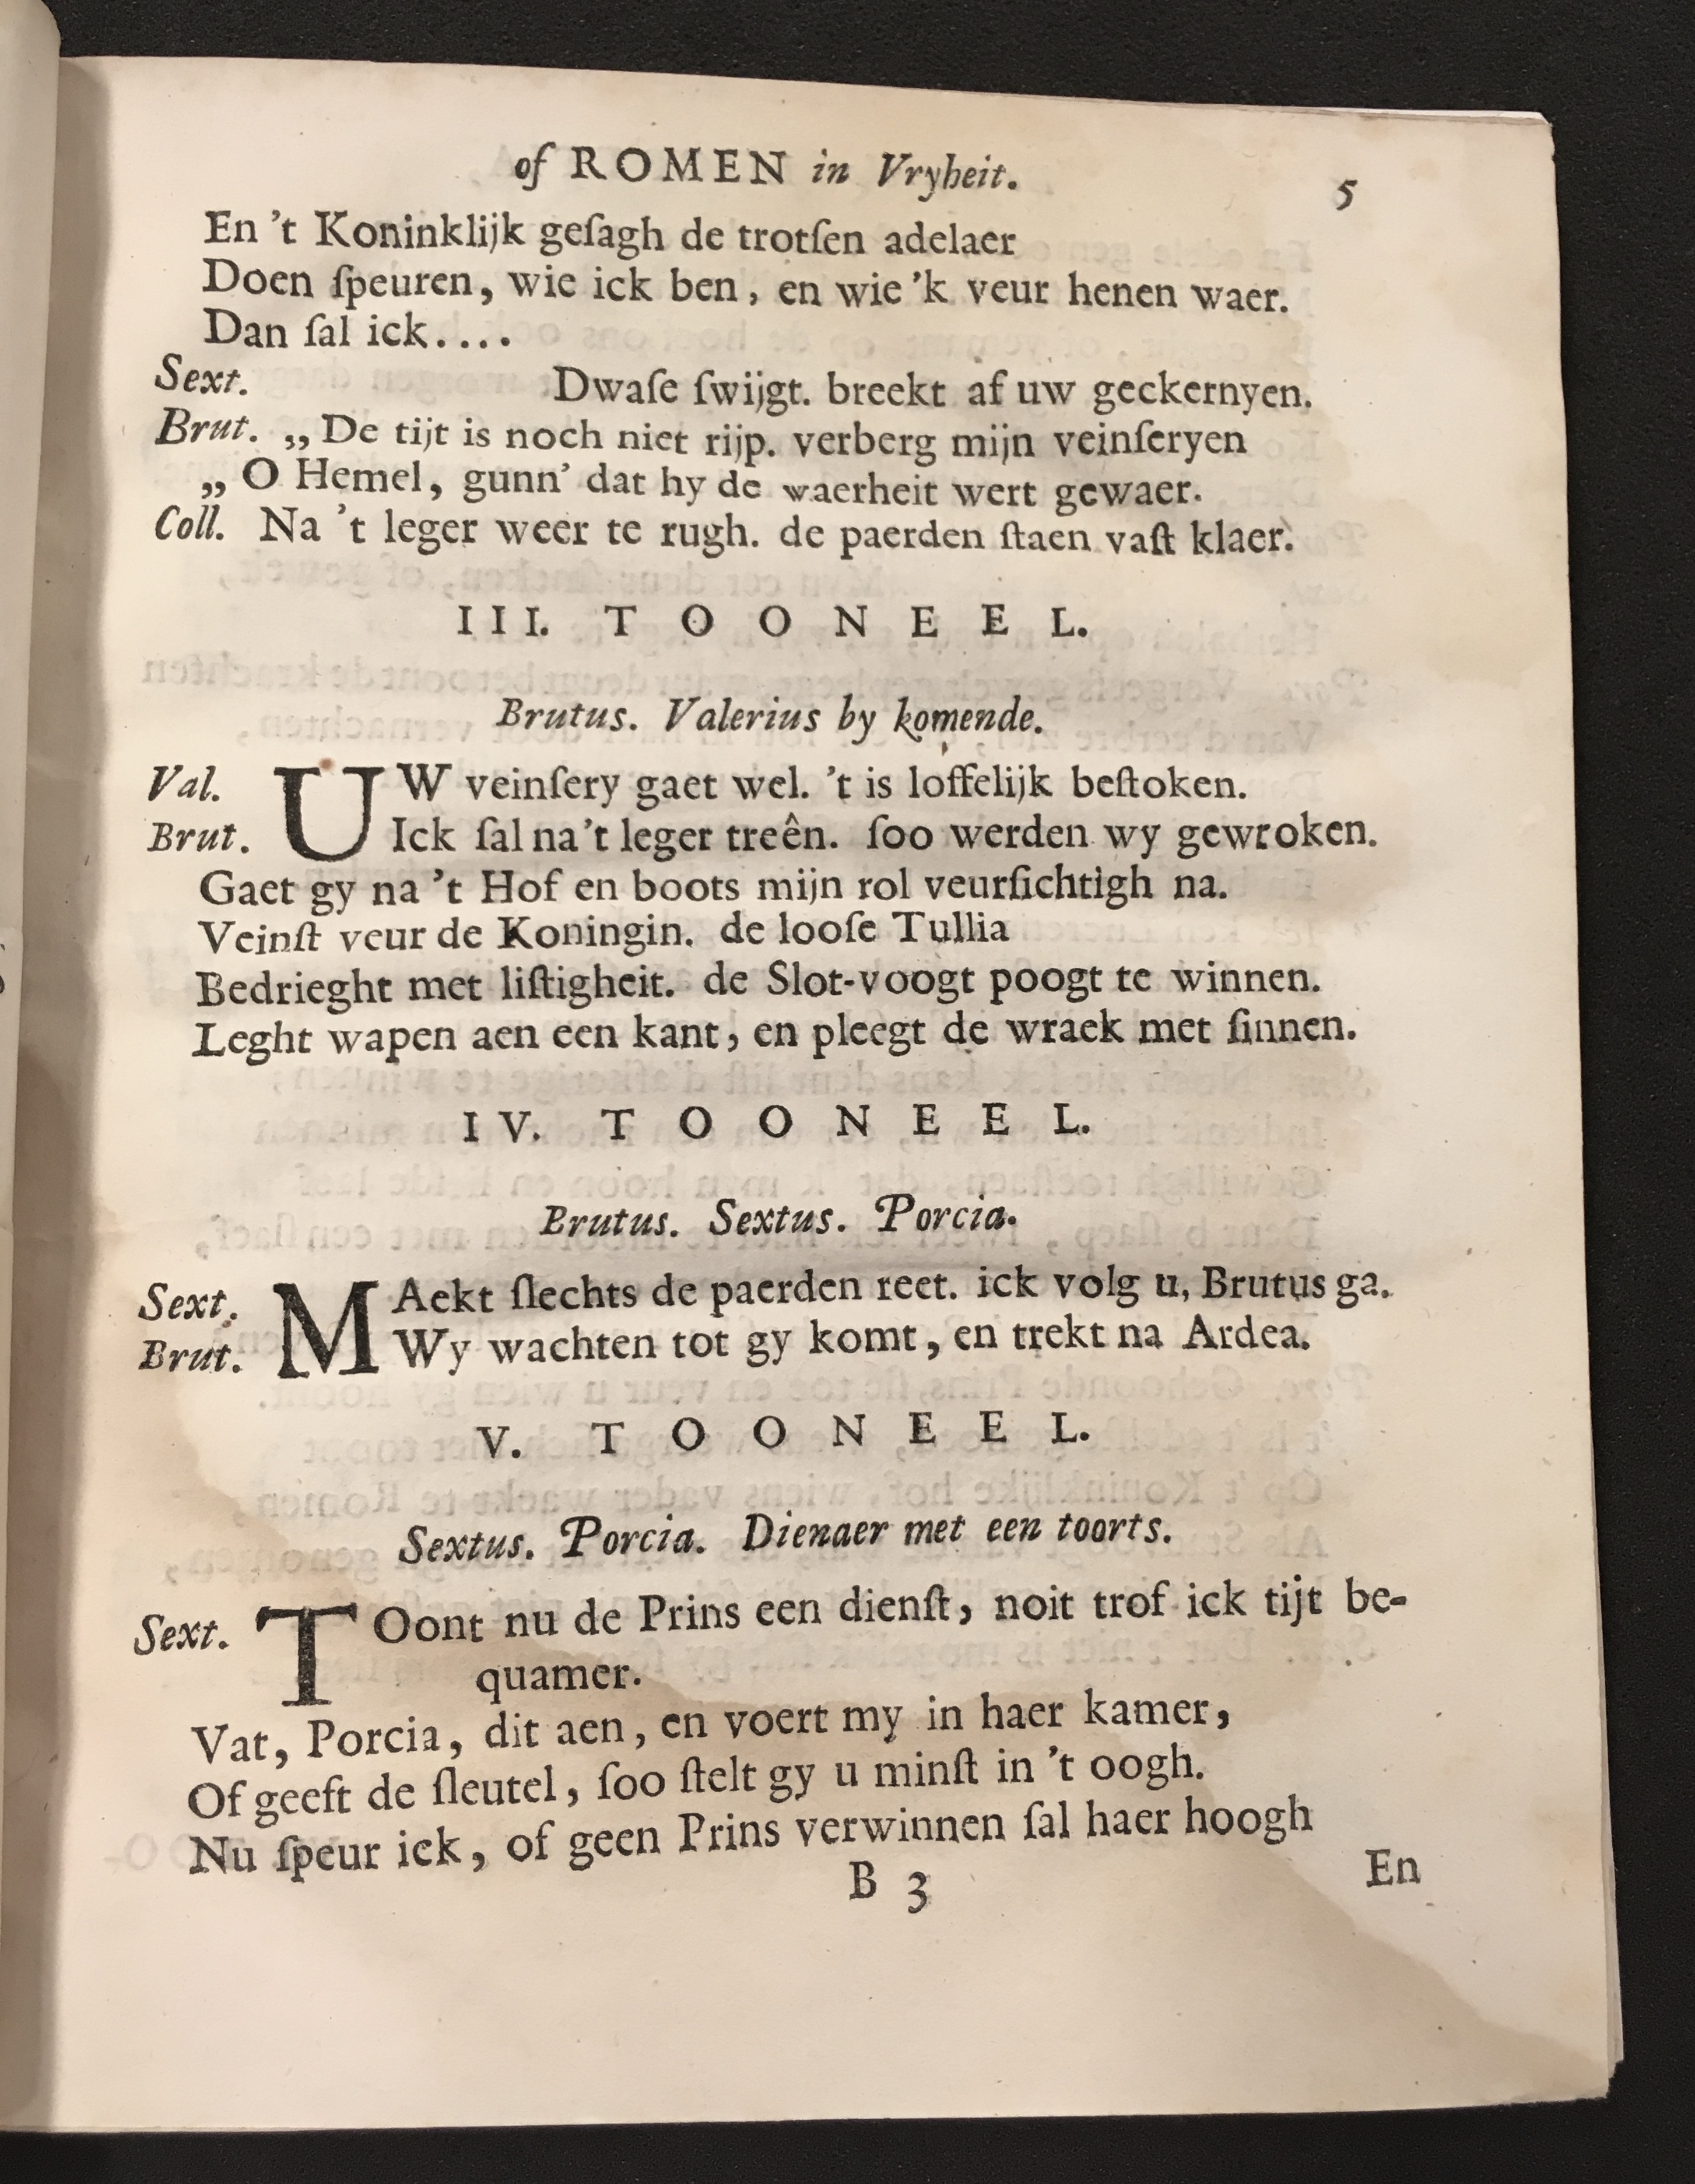 of ROMEN in Vryheit. 5
En 't Koninklijk geſagh de trotſen adelaer
Doen ſpeuren, wie ick ben, en wie 'k veur henen waer.
Dan ſal ick....
Sext. Dwaſe ſwijgt. breekt af uw geckernyen.
Brut. „De tijt is noch niet rijp. verberg mijn veinſeryen
„O Hemel, gunn' dat hy de waerheit wert gewaer.
Coll. Na 't leger weer te rugh. de paerden ſtaen vaſt klaer.
III. TOONEEL.
Brutus. Valerius by komende.
Val. UW veinſery gaet wel. 't is loffelijk beſtoken.
Brut. Ick ſal na't leger treên. ſoo werden wy gewroken.
Gaet gy na 't Hof en boots mijn rol veurſichtigh na.
Veinſt veur de Koningin. de looſe Tullia
Bedrieght met liſtigheit. de Slot-voogt poogt te winnen.
Leght wapen aen een kant, en pleegt de wraek met ſinnen.
IV. TOONEEL.
Brutus. Sextus. Porcia.
Sext. MAekt ſlechts de paerden reet. ick volg u, Brutus ga.
Brut. Wy wachten tot gy komt, en trekt na Ardea.
V. TOONEEL.
Sextus. Porcia. Dienaer met een toorts.
Sext. TOont nu de Prins een dienſt, noit trof ick tijt be-
quamer.
Vat, Porcia, dit aen, en voert my in haer kamer,
Of geeft de ſleutel, ſoo ſtelt gy u minſt in 't oogh.
Nu ſpeur ick, of geen Prins verwinnen ſal haer hoogh
B 3 En